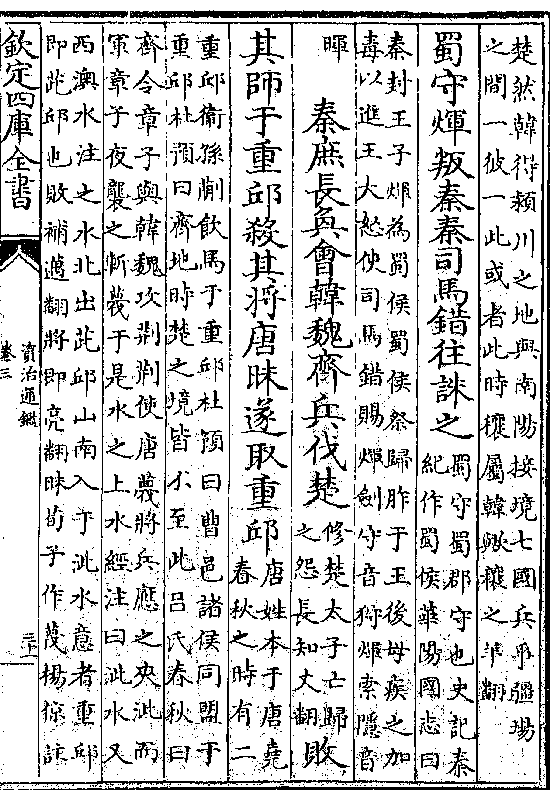 楚然韓得潁川之地與南陽接境七國兵爭疆埸
之間一彼一此或者此時穰屬韓歟穰之羊翻
蜀守煇叛秦秦司馬錯往誅之
蜀守蜀郡守也史記秦
紀作蜀侯華陽國志曰
秦封王子煇為蜀侯蜀侯祭歸胙于王後母疾之加
毒以進王大怒使司馬錯賜煇劍守音狩煇索隱音
暉
秦庶長奐會韓魏齊兵伐楚
修楚太子亡歸
之怨長知丈翻
敗
其師于重邱殺其將唐昧遂取重邱
唐姓本于唐堯
春秋之時有二
重邱衛孫蒯飲馬于重邱杜預曰曹邑諸侯同盟于
重邱杜預曰齊地時楚之境皆不至此呂氏春秋曰
齊令章子與韓魏攻荆荆使唐蔑將兵應之夾泚而
軍章子夜襲之斬蔑于是水之上水經注曰泚水又
西澳水注之水北出茈邱山南入于泚水意者重邱
即茈邱也敗補邁翻將即亮翻昧荀子作蔑楊倞註
欽定四庫全書
資治通鑑
卷三